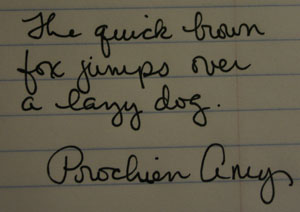 The quick brown
fox jumps over
a lazy dog.
Porochien Amy